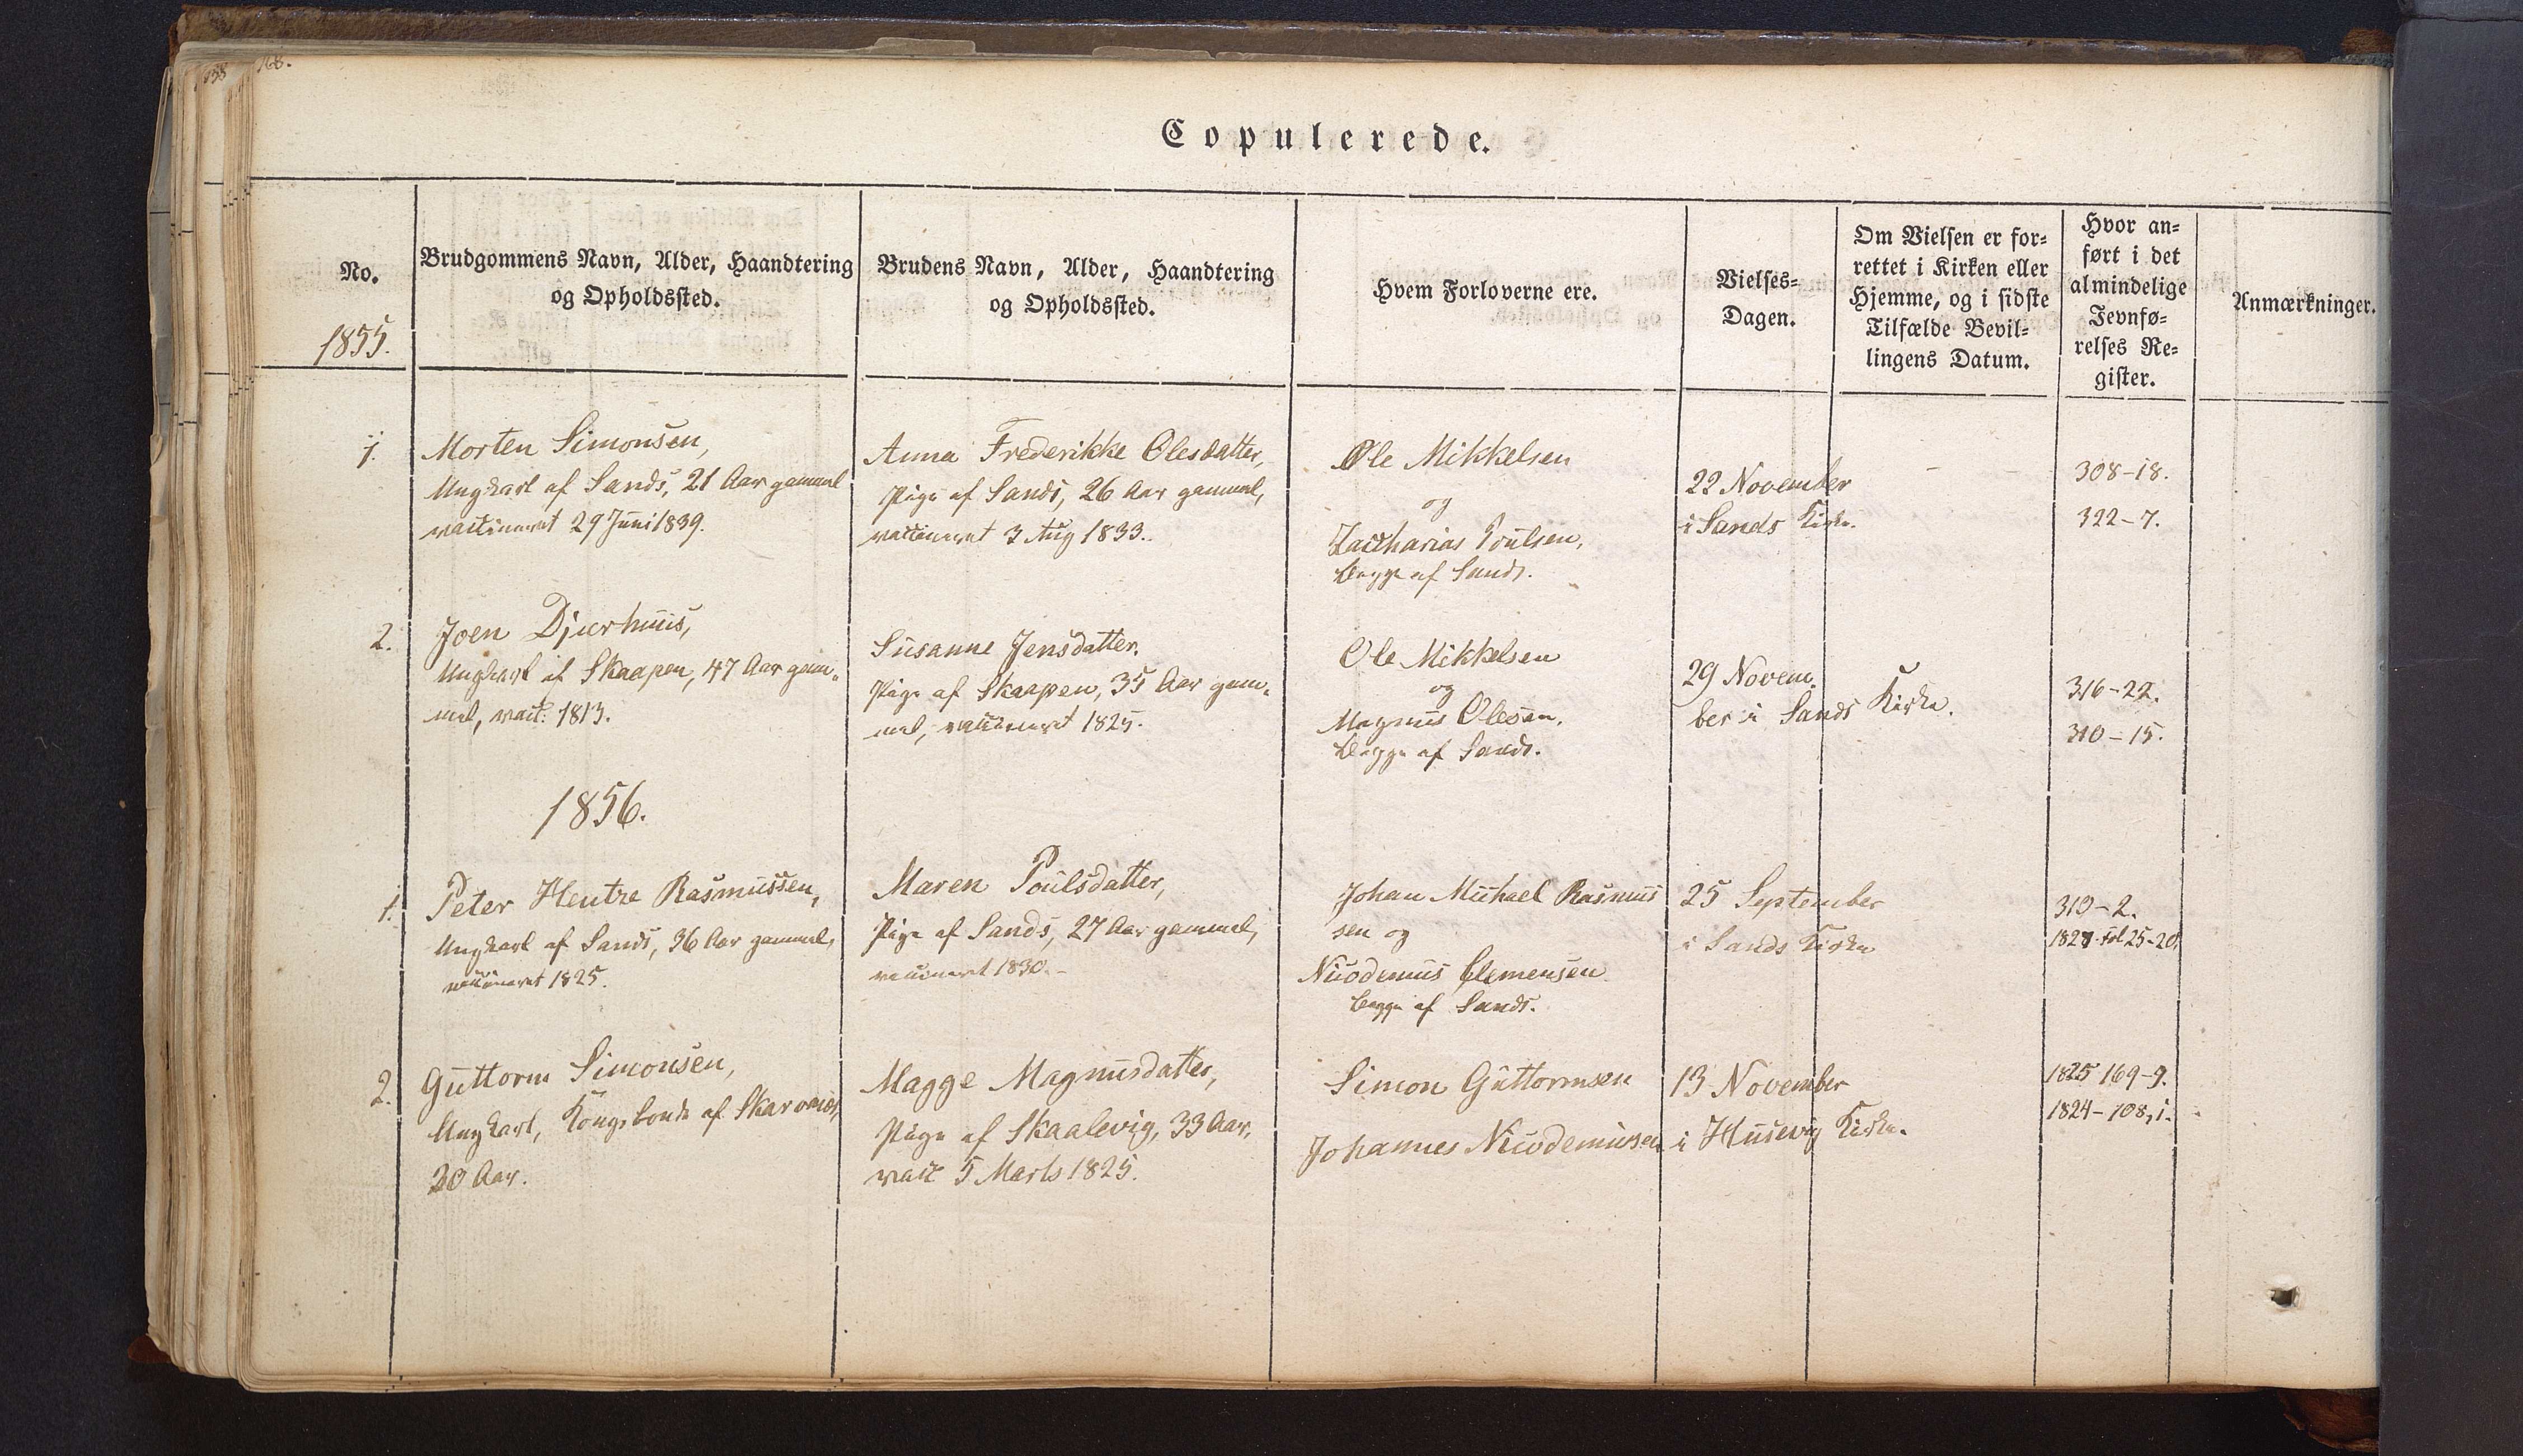 168.
Copulerede.
No.
1855.
Brudgommens Navn, Alder, Haandtering
og Opholdssted.
Brudens Navn, Alder, Haandtering
og Opholdssted.
Hvem Forloverne ere.
Vielses-
Dagen.
Om Vielsen er for-
rettet i Kirken eller
Hjemme, og i sidste
Tilfælde Bevil-
lingens Datum.
Hvor an-
ført i det
almindelige
Jevnfø-
relses Re-
gister.
Anmærkninger.
1.
Morten Simonsen,
Ungkarl af Sands, 21 Aar gammel
vaccineret 29 Juni 1839.
Anna Frederikke Olesdatter,
Pige af Sands, 26 Aar gammel,
vaccineret 3 Aug 1833.
Ole Mikkelsen
og
Zacharias Poulsen,
begge af Sands.
22 November
i Sands Kirke.
308-18.
322-7.
2.
Joen Djurhuus,
Ungkarl af Skaapen, 47 Aar gam-
mel, vacc: 1813.
Susanne Jensdatter,
Pige af Skaapen, 35 Aar gam-
mel, vaccineret 1825.
Ole Mikkelsen
og
Magnus Olesen,
begge af Sands.
29 Novem-
ber i Sands Kirke.
316-22.
310-15.
1856.
1.
Peter Hentze Rasmussen,
Ungkarl af Sands, 36 Aar gammel,
vaccineret 1825.
Maren Poulsdatter,
Pige af Sands, 27 Aar gammel,
vaccineret 1830.-
Johan Michael Rasmus
sen og
Nicodemus Clemensen
begge af Sands.
25 September
i Sands Kirke
313-2.
fol 25-20.
2.
Guttorm Simonsen,
Ungkarl, Kongsbonde af
20 Aar.
Magge Magnusdatter,
Pige af Skaalevig, 33 Aar,
vacc 5 Marts 1825.
Simon Guttormsen
Johannes Nicodemussen
13 November
i Husevig Kirke.
1825 169-9.
1824-108,1.